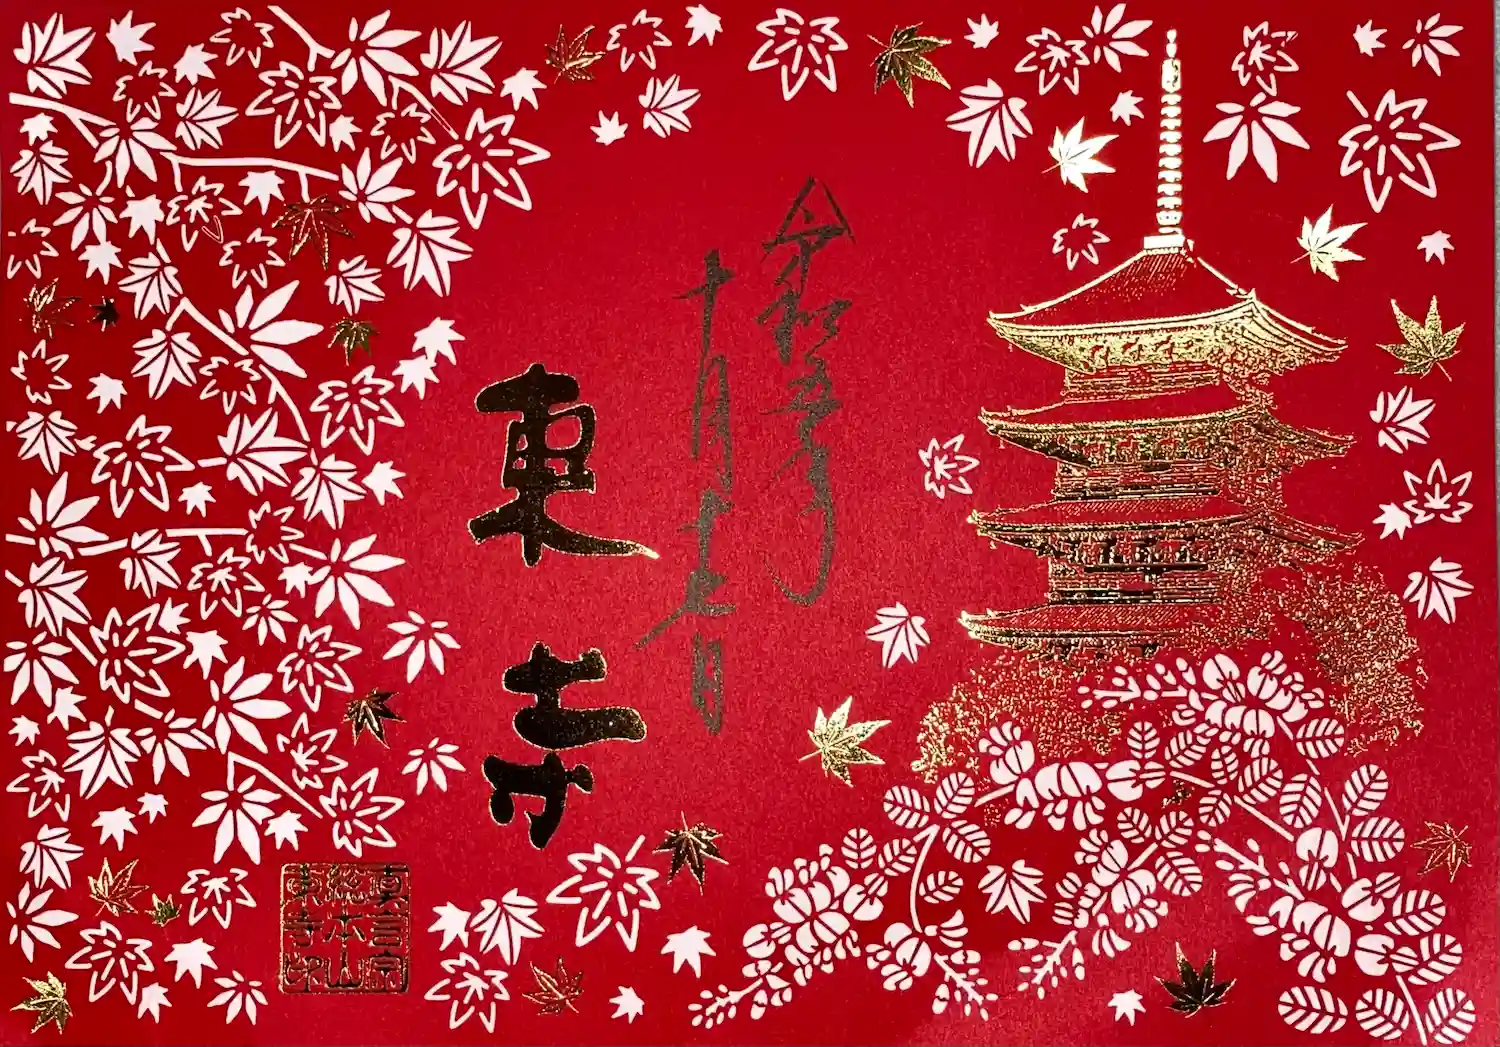 令和五年
十月十七日
東寺
真言宗
総本山
東寺印